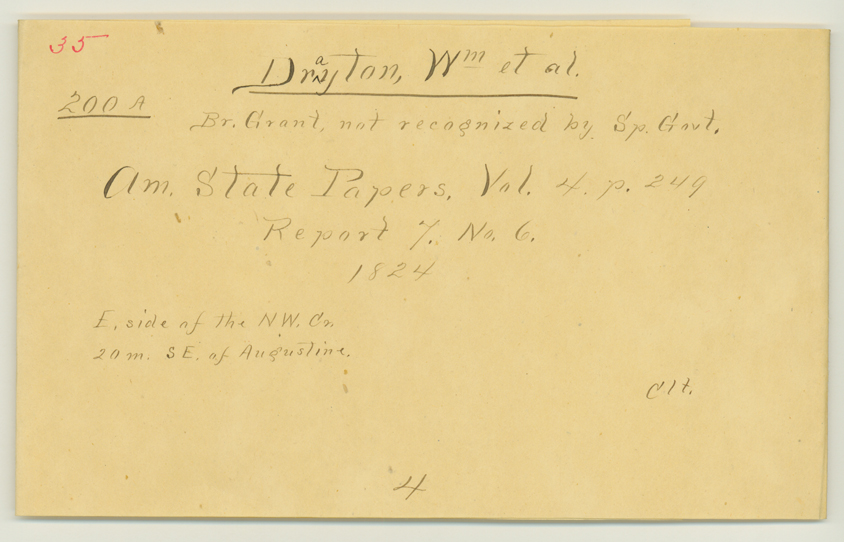 35
Drayton, Wm et al.
200 A
Br. Grant, not recognized by Sp. Govt.
Am. State Papers, Vol. 4. p. 249
Report 7. No. 6.
1824
E. side of the NW. Cr.
20 m. SE. of Augustine.
Clt.
4